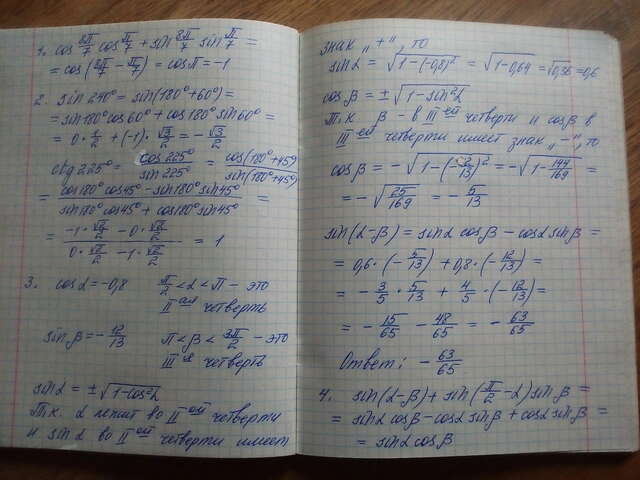 1. cos 8π/7 cos π/7 + sin 8π/7 sin π/7 =
= cos (8π/7 − π/7) = cos π = −1
2. sin 240° = sin(180° + 60°) =
= sin 180° cos 60° + cos 180° sin 60° =
= 0 · 1/2 + (−1) · √3/2 = − √3/2
ctg 225° = cos 225° / sin 225° = cos(180° + 45°) / sin(180° + 45°)
= cos 180° cos 45° − sin 180° sin 45° / sin 180° cos 45° + cos 180° sin 45° =
= −1 · √2/2 − 0 · √2/2 / 0 · √2/2 − 1 · √2/2 = 1
3. cos α = −0,8 π/2 < α < π − это
II ая четверть
sin β = − 12/13 π < β < 3π/2 − это
III я четверть
sin α = ± √1−cos²α
Т.к. α лежит во II ой четверти
и sin α во II ой четверти имеет
знак „+“, то
sin α = √1−(−0,8)² = √1−0,64 = √0,36 = 0,6
cos β = ± √1−sin²α
Т.к. β − в III ей четверти и cos β в
III ей четверти имеет знак „−“, то
cos β = − √1−(−12/13)² = − √1− 144/169 =
= − √25/169 = − 5/13
sin(α−β) = sin α cos β − cos α sin β =
= 0,6 · (− 5/13) + 0,8 · (− 12/13) =
= − 3/5 · 5/13 + 4/5 · (− 12/13) =
= − 15/65 − 48/65 = − 63/65
Ответ: − 63/65
4. sin(α−β) + sin(π/2 − α) sin β =
= sin α cos β − cos α sin β + cos α sin β =
= sin α cos β